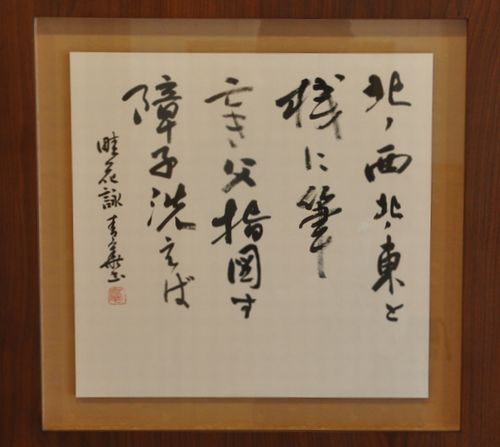 北ノ西北ノ東と
桟に筆
亡き父指図す
障子洗えば
畦花詠 青華書